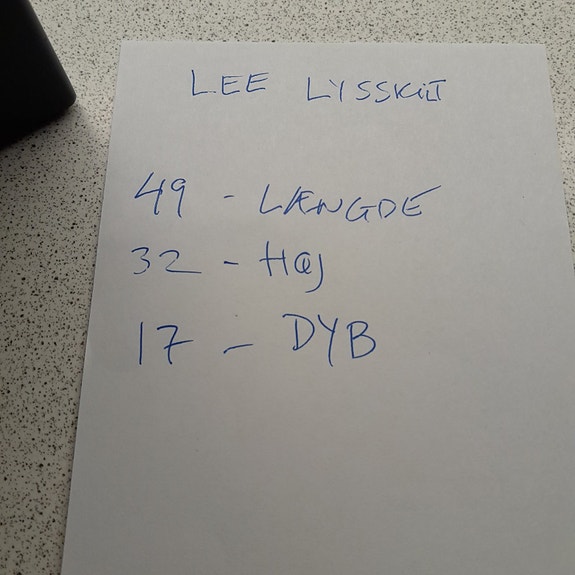 LEE LYSSKILT
49 - LÆNGDE
32 - HØJ
17 - DYB